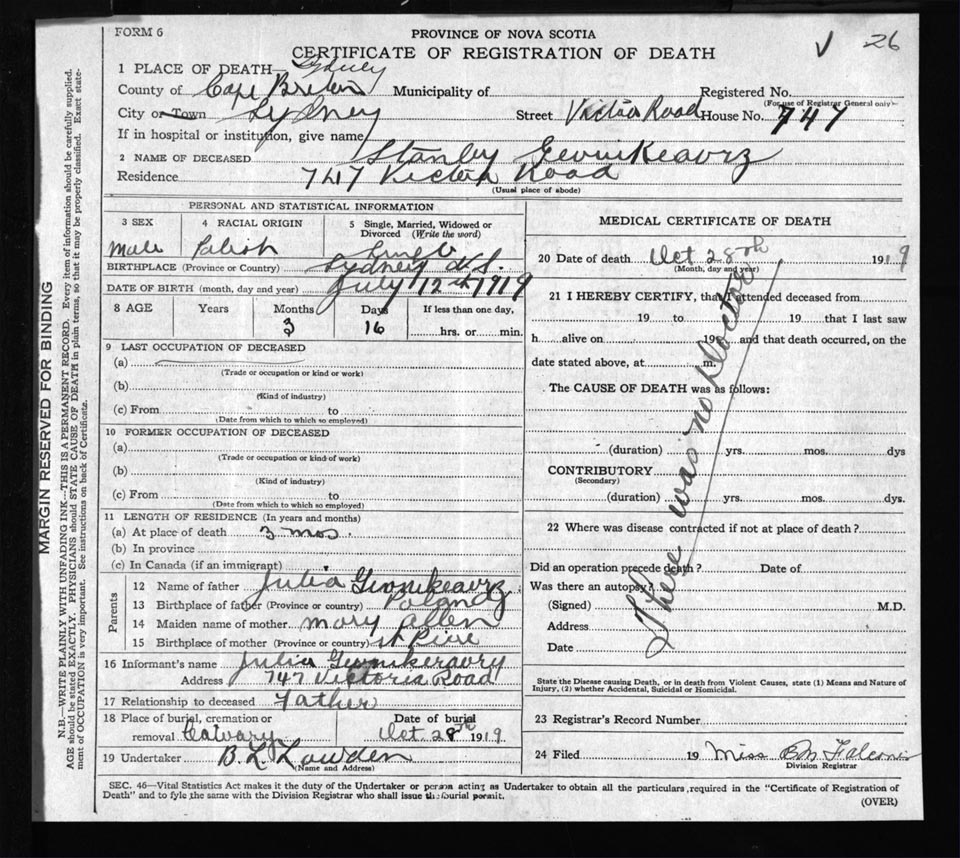 FORM 6
PROVINCE OF NOVA SCOTIA
CERTIFICATE OF REGISTRATION OF DEATH
√ 26
1 PLACE OF DEATH— Sydney
County of Cape Breton Municipality of Registered No.
(For use of Registrar General only)
City or Town Sydney Street Victoria Road House No. 747
If in hospital or institution, give name
2 NAME OF DECEASED Stanley
Residence 747 Victoria Road
(Usual place of abode)
PERSONAL AND STATISTICAL INFORMATION
3 SEX 4 RACIAL ORIGIN 5 Single, Married, Widowed or
Divorced (Write the word)
Male Polish Single
BIRTHPLACE (Province or Country) Sydney N.S.
DATE OF BIRTH (month, day and year) July 12th 1919
8 AGE Years Months Days If less than one day,
3 16 hrs. or min.
9 LAST OCCUPATION OF DECEASED
(a)
(Trade or occupation or kind or work)
(b)
(Kind of industry)
(c) From to
(Date from which to which so employed)
10 FORMER OCCUPATION OF DECEASED
(a)
(Trade or occupation or kind of work)
(b)
(Kind of industry)
(c) From to
(Date from which to which so employed)
11 LENGTH OF RESIDENCE (In years and months)
(a) At place of death 3 mos.
(b) In province
(c) In Canada (if an immigrant)
Parents
12 Name of father Julia
13 Birthplace of father (Province or country) Poland
14 Maiden name of mother Mary Allen
15 Birthplace of mother (Province or country) St
16 Informant's name Julia
Address 747 Victoria Road
17 Relationship to deceased Father
18 Place of burial, cremation or Date of burial
removal Calvary Oct. 28th 1919.
19 Undertaker B. L. Lowden
(Name and Address)
MEDICAL CERTIFICATE OF DEATH
20 Date of death Oct 28th 1919
(Month, day and year)
21 I HEREBY CERTIFY, that I attended deceased from
19 to 19 that I last saw
h alive on 19 and that death occurred, on the
date stated above, at m.
The CAUSE OF DEATH was as follows:
(duration) yrs. mos. dys
CONTRIBUTORY
(Secondary)
(duration) yrs. mos. dys.
There was no Doctor
22 Where was disease contracted if not at place of death?
Did an operation precede death? Date of
Was there an autopsy?
(Signed) M.D.
Address
Date
State the Disease causing Death, or in death from Violent Causes, state (1) Means and Nature of
Injury, (2) whether Accidental, Suicidal or Homicidal.
23 Registrar's Record Number
24 Filed 19 Miss
Division Registrar
SEC. 46—Vital Statistics Act makes it the duty of the Undertaker or person acting as Undertaker to obtain all the particulars required in the "Certificate of Registration of
Death" and to file the same with the Division Registrar who shall issue the burial permit.
(OVER)
MARGIN RESERVED FOR BINDING
N.B.—WRITE PLAINLY WITH UNFADING INK—THIS IS A PERMANENT RECORD. Every item of information should be carefully supplied.
AGE should be stated EXACTLY. PHYSICIANS should STATE CAUSE OF DEATH in plain terms, so that it may be properly classified. Exact state-
ment of OCCUPATION is very important. See instructions on back of Certificate.